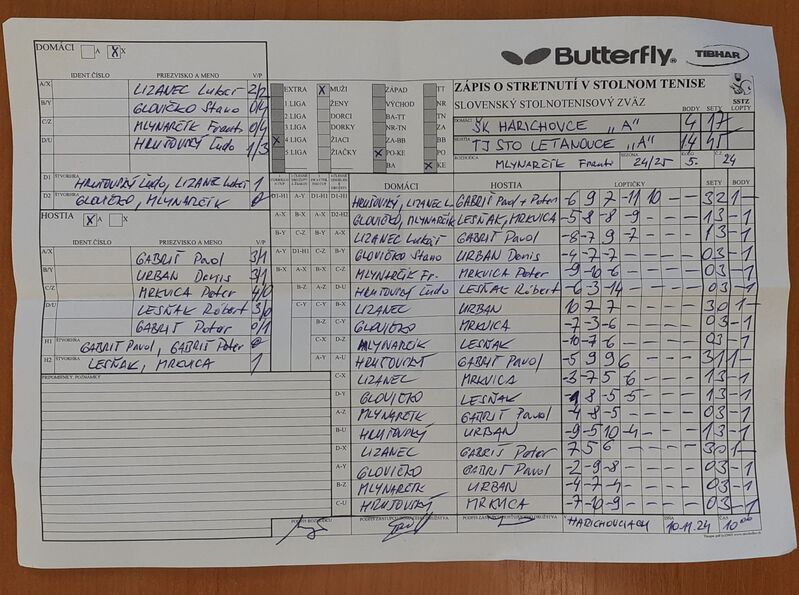 DOMÁCI A X
Butterfly TIBHAR
IDENT.ČÍSLO PRIEZVISKO A MENO V/P
A/X LIZANEC Lukáš 2/2
B/Y GLOVIČKO Stano 0/4
C/Z MLYNARČÍK Frant. 0/4
D/U HRUŤOVSKÝ Ľudo 1/3
D1 ŠTVORHRA HRUŤOVSKÝ Ľudo, LIZANEC Lukáš 1
D2 ŠTVORHRA GLOVIČKO, MLYNARČÍK 0
EXTRA X MUŽI ZÁPAD TT
1 LIGA ŽENY VÝCHOD NR
2 LIGA DORCI BA-TT
3 LIGA DORKY NR-TN ZA
X 4 LIGA ŽIACI ZA-BB
5 LIGA ŽIAČKY X PO-KE
BA X KE
ZÁPIS O STRETNUTÍ V STOLNOM TENISE
SLOVENSKÝ STOLNOTENISOVÝ ZVÄZ
SSTZ
BODY SETY LOPTY
DOMÁCI ŠK HARICHOVCE „A" 4 17
HOSTIA TJ STO LETANOVCE „A" 14 45
ROZHODCA MLYNARČÍK Franti SEZÓNA 24/25 KOLO 5. ČAS 24
HOSTIA X A
IDENT.ČÍSLO PRIEZVISKO A MENO V/P
A/X GABRIŠ Pavol 3/1
B/Y URBAN Denis 3/1
C/Z MRKVICA Peter 4/0
D/U LESŇAK Róbert 3/0
GABRIŠ Peter 0/1
H1 ŠTVORHRA GABRIŠ Pavol, GABRIŠ Peter 0
H2 ŠTVORHRA LESŇAK, MRKVICA 1
PRIPOMIENKY, POZNÁMKY
DOMÁCI HOSTIA LOPTIČKY SETY BODY
HRUŤOVSKÝ, LIZANEC L. GABRIŠ Pavol + Peter -6 9 7 -11 10 - - 3 2 1 -
GLOVIČKO, MLYNARČÍK LESŇAK, MRKVICA -5 -8 8 -9 - - - 1 3 - 1
LIZANEC Lukáš GABRIŠ Pavol -8 -7 9 -7 - - - 1 3 - 1
GLOVIČKO Stano URBAN Denis -4 -7 -7 - - - - 0 3 - 1
MLYNARČÍK Fr. MRKVICA Peter -9 -10 -6 - - - - 0 3 - 1
D-U HRUŤOVSKÝ Ľudo LESŇAK Róbert -6 -3 -14 - - - - 0 3 - 1
LIZANEC URBAN 10 7 7 - - - - 3 0 1 -
GLOVIČKO MRKVICA -7 -3 -6 - - - - 0 3 - 1
MLYNARČÍK LESŇAK -10 -7 6 - - - - 0 3 - 1
A-U HRUŤOVSKÝ GABRIŠ Pavol -5 9 9 6 - - - 3 1 1 -
C-X LIZANEC MRKVICA -3 -7 5 -6 - - - 1 3 - 1
D-Y GLOVIČKO LESŇAK -8 -5 -5 - - - 1 3 - 1
A-Z MLYNARČÍK GABRIŠ Pavol -4 -8 -5 - - - - 0 3 - 1
B-U HRUŤOVSKÝ URBAN -9 -5 10 -4 - - - 1 3 - 1
D-X LIZANEC GABRIŠ Peter 7 5 6 - - - - 3 0 1 -
A-Y GLOVIČKO GABRIŠ Pavol -2 -9 -8 - - - - 0 3 - 1
B-Z MLYNARČÍK URBAN -4 -7 -4 - - - - 0 3 - 1
C-U HRUŤOVSKÝ MRKVICA -7 -10 -9 - - - - 0 3 - 1
PODPIS ROZHODCU PODPIS ZÁSTUPCU DOMÁCEHO DRUŽSTVA PODPIS ZÁSTUPCU HOSŤUJÚCEHO DRUŽSTVA
V HARICHOVCIACH DŇA 10.11.24 ČAS 10 00